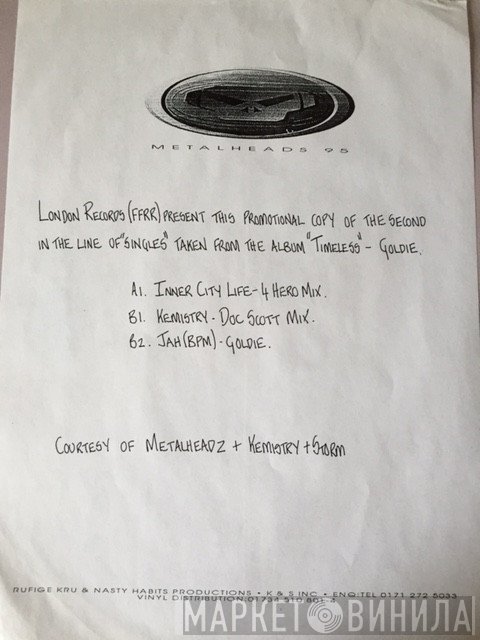 METALHEADS 95
LONDON RECORDS (FFRR) PRESENT THIS PROMOTIONAL COPY OF THE SECOND
IN THE LINE OF "SINGLES" TAKEN FROM THE ALBUM "TIMELESS" - GOLDIE.
A1. INNER CITY LIFE - 4 HERO MIX.
B1. KEMISTRY - DOC SCOTT MIX.
B2. JAH (BPM) - GOLDIE.
COURTESY OF METALHEADZ + KEMISTRY + STORM
RUFIGE KRU & NASTY HABITS PRODUCTIONS • K & S INC • ENQ:TEL 0171 272 5033
VINYL DISTRIBUTION: 01734 510 80E 4
МАРКЕТ ВИНИЛА